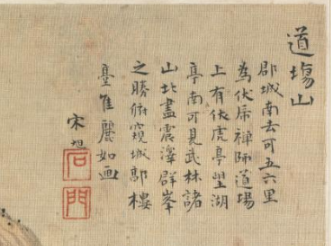 道塲山
郡城南去可五六里
為伏虎禪師道塲
上有伏虎亭望湖
亭南可見武林諸
山北盡震澤群峯
之勝俯窺城郭樓
臺佳麗如画
宋旭
石門